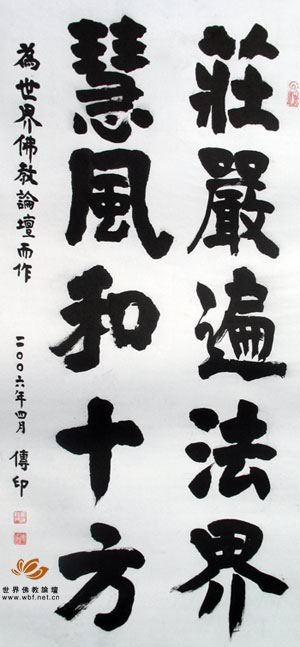 莊嚴遍法界
慧風和十方
為世界佛教論壇而作
二〇〇六年四月 傳印
世界佛教論壇
www.wbf.net.cn